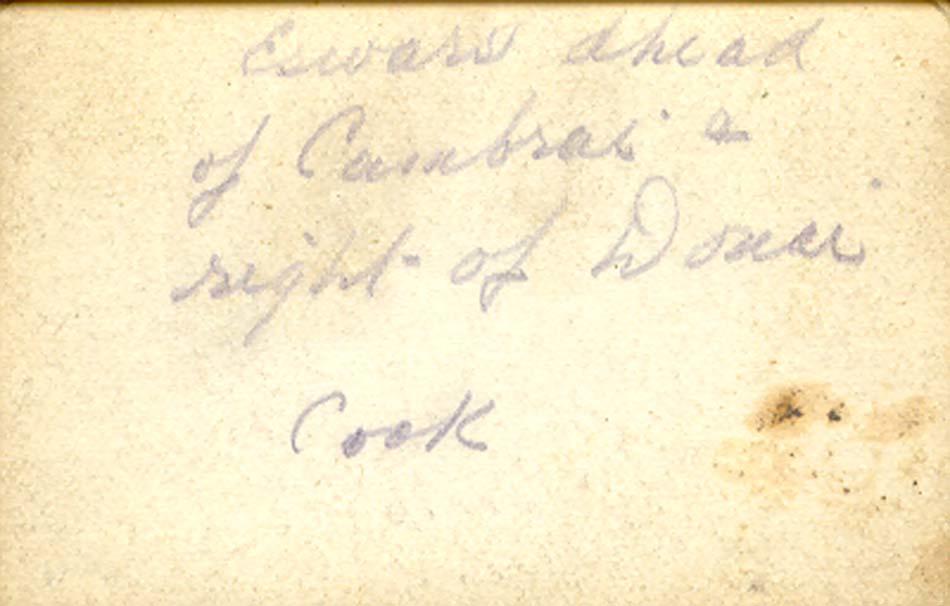 Eswars ahead
of Cambrai &
right of Douai
Cook